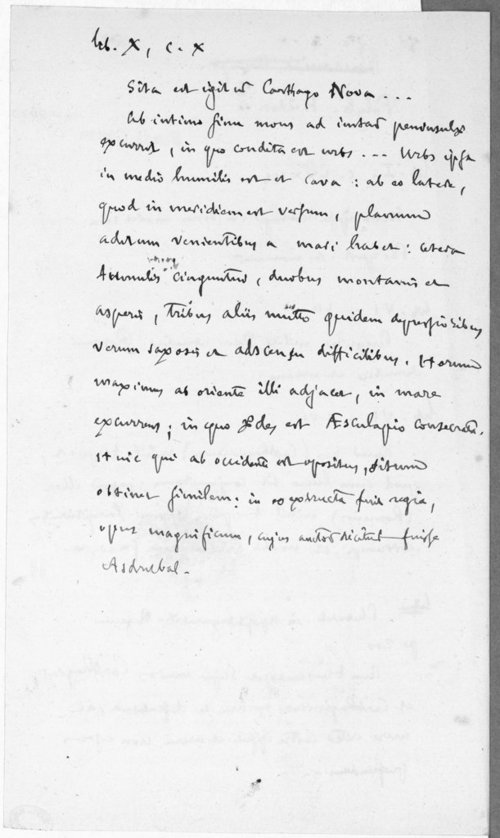 lib. X, c. X
Sita est igitur Carthago Nova ...
Ab intimo sinu mons ad instar peninsulæ
excurrit, in quo condita est urbs ... Urbs ipsa
in medio humilis est et cava : ab eo latere,
quod in meridiem est versum, planum
aditum venientibus a mari habet : cetera
tumulis cinguntur, duobus montanis et
asperis, tribus aliis multo quidem depressioribus
verum saxosis et adscensu difficilibus. Horum
maximus ab oriente illi adjacet, in mare
excurrens; in quo ædes est Æsculapio consecrata.
Huic qui ab occidente est opositus, situm
obtinet similem : in eo exstructa fuit regia,
opus magnificum, cujus auctor dicitur fuisse
Asdrubal.